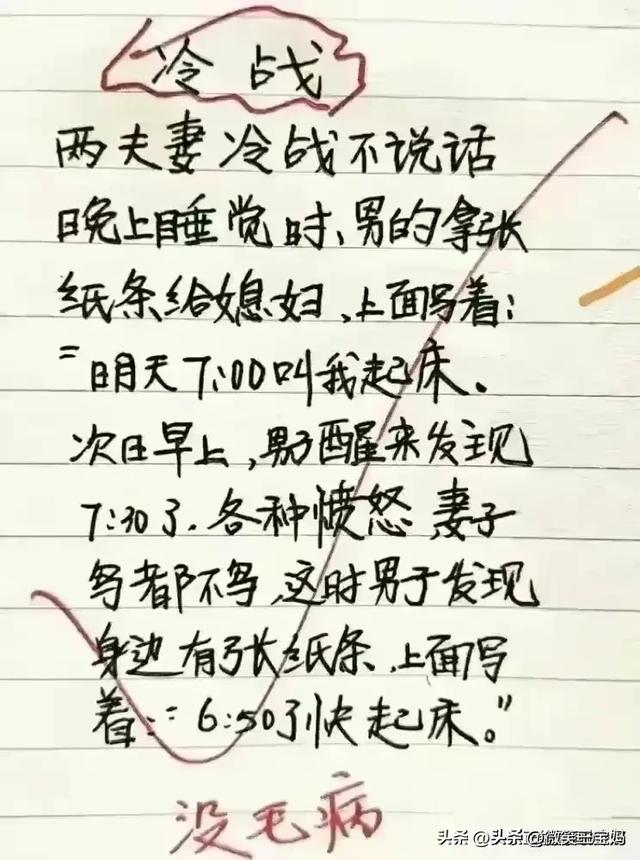 冷战
两夫妻冷战不说话
晚上睡觉时、男的拿张
纸条给媳妇、上面写着:
"明天7:00叫我起床、
次日早上,男子醒来发现
7:30了.各种愤怒 妻子
鸟都不鸟,这时男子发现
身边有张纸条,上面写
着:"6:50了快起床。"
没毛病
头条 @头条